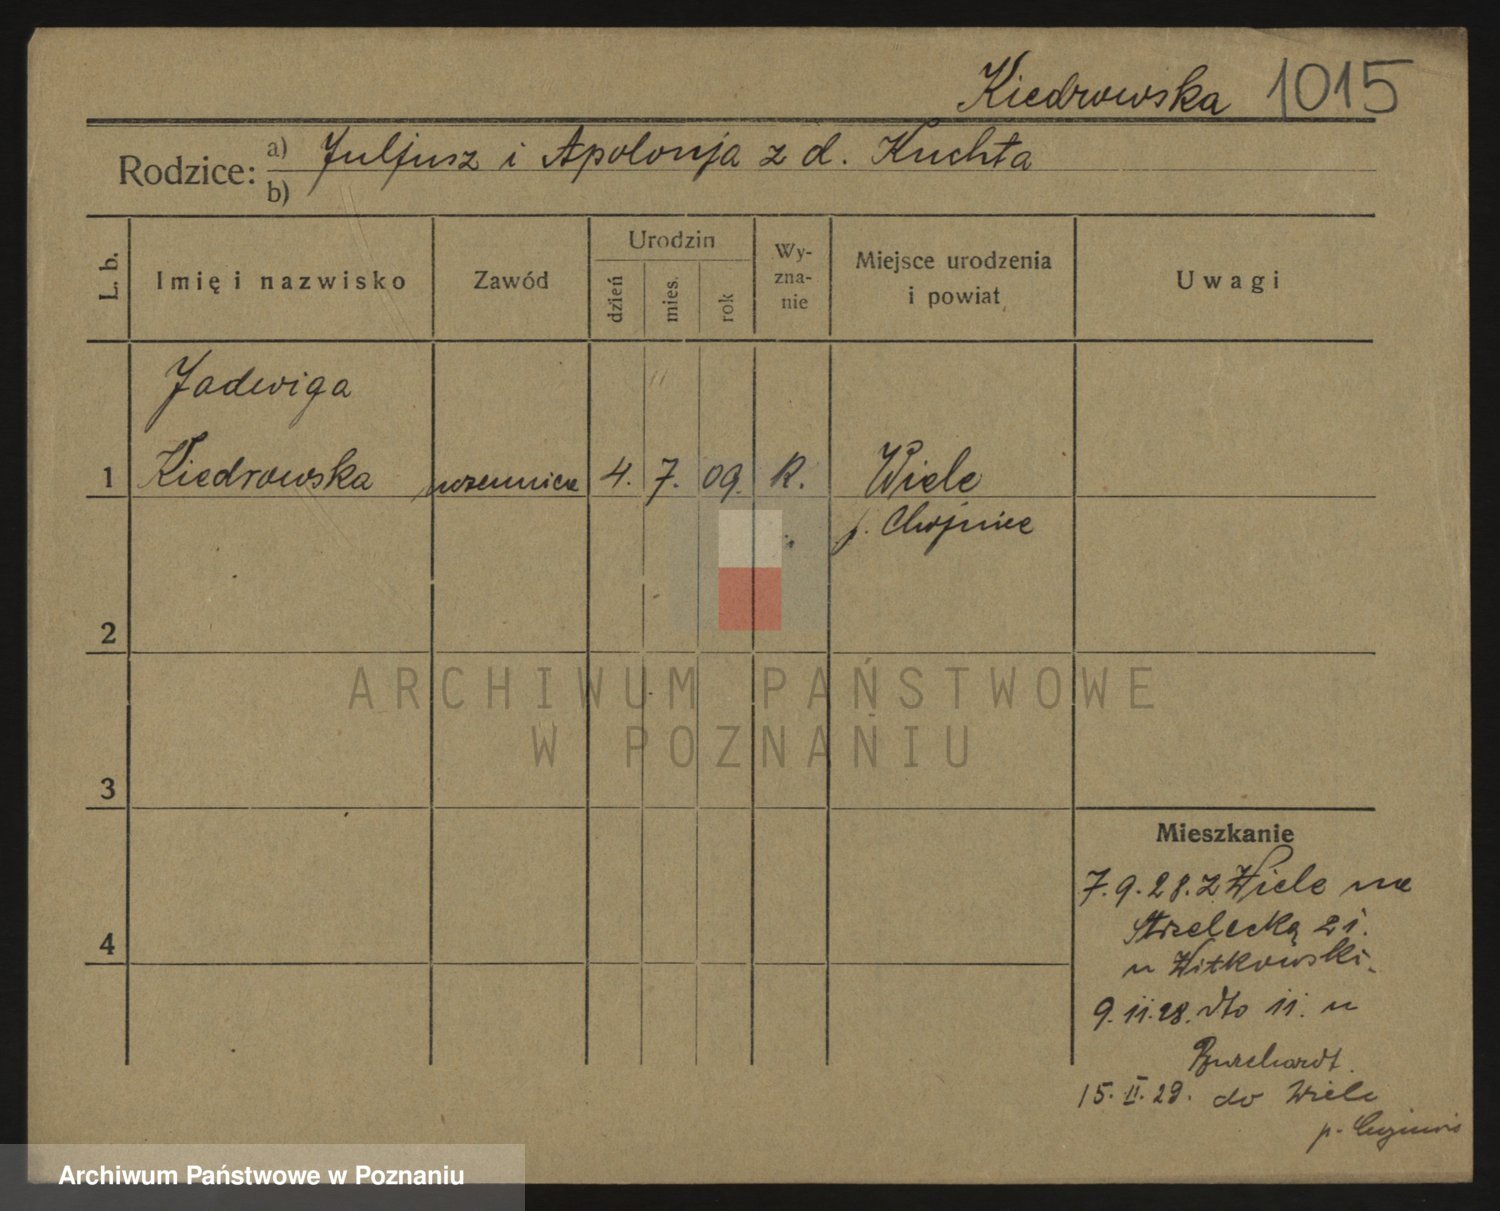 Kiedrowska 1015
Rodzice: a) Juljusz i Apolonja z d. Kuchta
b)
L. b.
Imię i nazwisko
Zawód
Urodzin
dzień
mies.
rok
Wy-
zna-
nie
Miejsce urodzenia
i powiat
Uwagi
Jadwiga
1 Kiedrowska uczennica 4. 7. 09. R. Wiele
p. Chojnice
2
ARCHIWUM PAŃSTWOWE
W POZNANIU
3
Mieszkanie
7.9.28. z Wiele na
Strzelecką 21.
4
u Witkowski.
9.11.28. dto 11. u
Burchardt.
15.II.29. do Wiele
p.
Archiwum Państwowe w Poznaniu